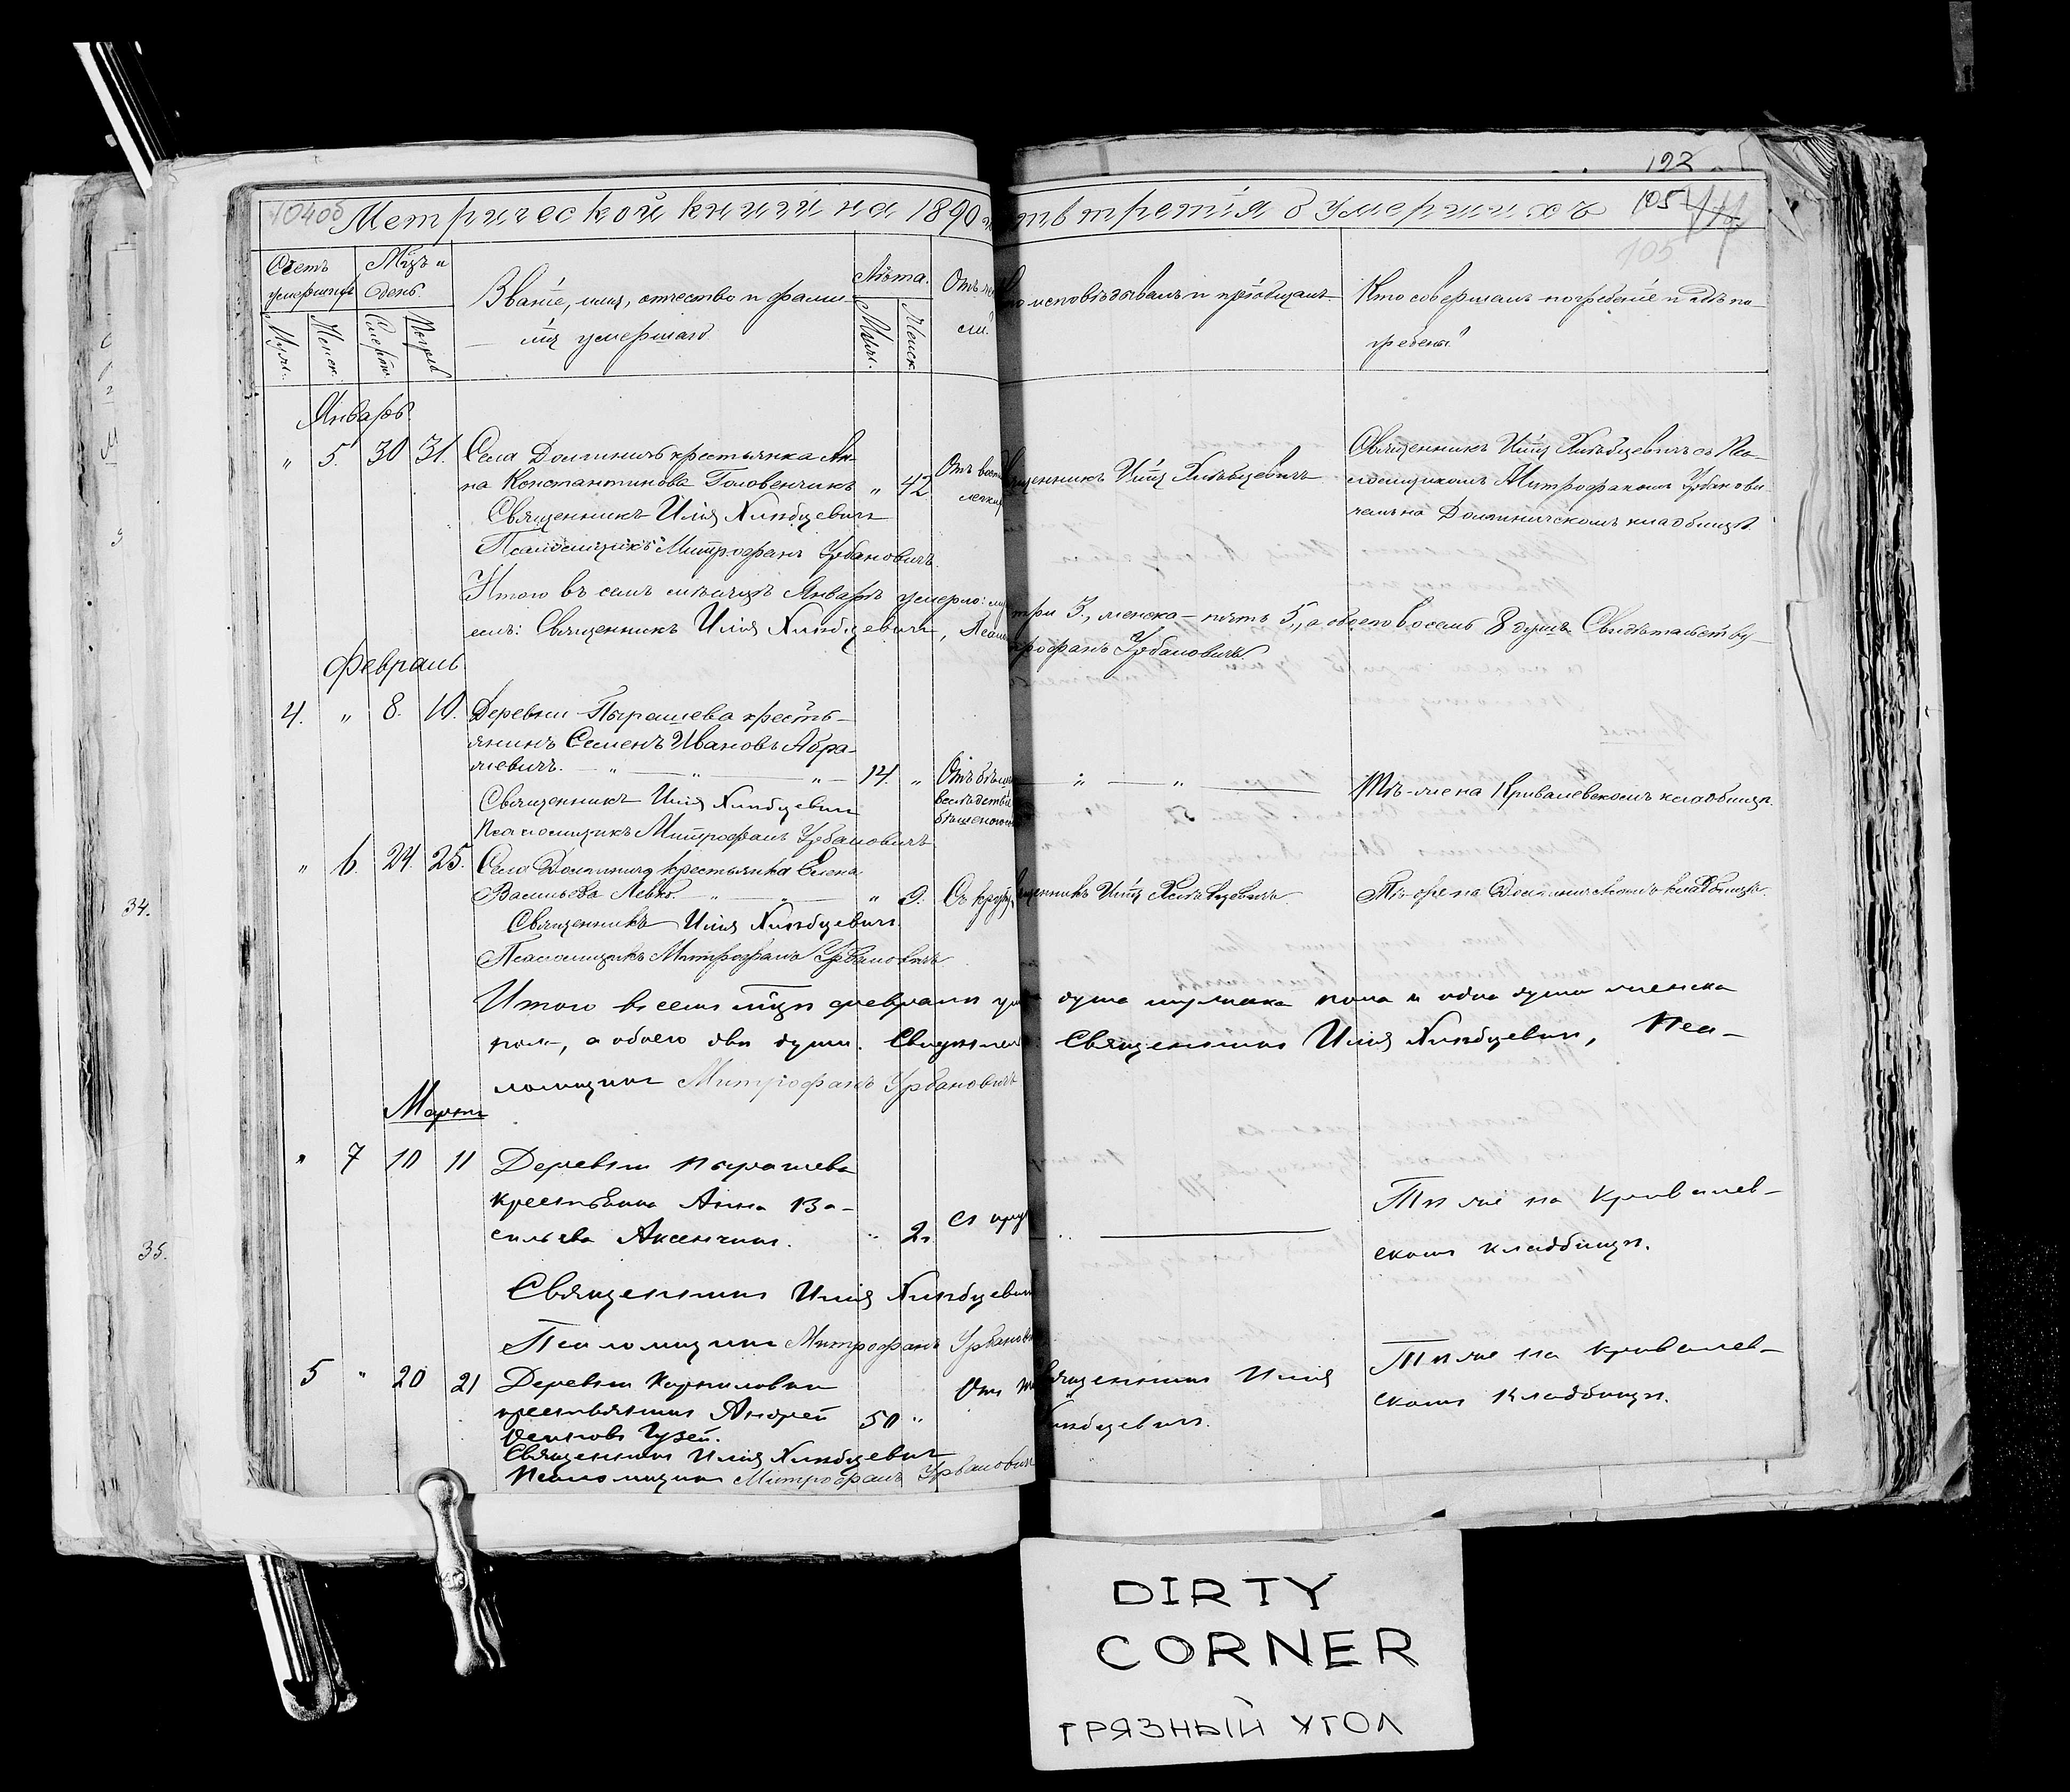 Метрической книги на 1890
часть третія о умершихъ 105
123
105
Счетъ умершихъ
Мѣсяцъ и день.
Званіе, имя, отчество и фами-
лія умершаго
Лѣта.
Отъ
чего исповѣдывалъ и пріобщалъ
Кто совершалъ погребеніе и гдѣ по-
гребены.
Муж. Женск. Смерти. Погреб. Муж. Женск.
Январь
" 5. 30 31. Села Долгиничъ крестьянка Ан-
на Константинова Головенчикъ " 42. Отъ воспа
легкихъ
Священникъ Илія Хлѣбцевичъ
Священникъ Илія Хлѣбцевичъ съ Пса-
ломщикомъ Митрофаномъ Урбанови-
чемъ на Долгиничскомъ кладбищѣ
Священникъ Илія Хлѣбцевичъ
Псаломщикъ Митрофанъ Урбановичъ.
Итого въ семъ мѣсяцѣ Январѣ умерло: три 3., женска – пять 5, а обоего восемь 8 душъ Свидѣтельству-
емъ: Священникъ Илія Хлѣбцевичъ, Митрофанъ Урбановичъ
Февраль
4. " 8. 10. Деревни Пырашева кресть-
янинъ Семенъ Ивановъ Абра-
мевичъ. " " " 14. "
вслѣдствіе
" "
Тѣ-же на Кривалевскомъ кладбищѣ.
Священникъ Илія Хлѣбцевичъ
Псаломщикъ Митрофанъ Урбановичъ
" 6. 24. 25. Села Долгиничъ крестьянка Елена
Васильева Левко. " " " 9. Съ крупу
Священникъ Илія Хлѣбцевичъ.
Тѣ-же на Долгиничскомъ кладбищѣ.
Священникъ Илія Хлѣбцевичъ.
Псаломщикъ Митрофанъ Урбановичъ
Итого въ семъ мѣсяцѣ февралѣ душа мужска пола и одна душа женска
пола, а обоего двѣ души. Священникъ Илія Хлѣбцевичъ, Пса-
ломщикъ Митрофанъ Урбановичъ
Мартъ
" 7 10 11 Деревни Пырашева
крестьянка Анна Ва-
сильева Аксенчикъ. " 2. Съ круп
"
Тѣ же на Кривалев-
скомъ кладбищѣ.
Священникъ Илія Хлѣбцевичъ
Псаломщикъ Митрофанъ Урбановичъ
5 " 20 21 Деревни Корниловки
крестьянинъ Андрей 50 " Отъ
Осиповъ Гузей.
Священникъ Илія
Хлѣбцевичъ.
Тѣ же на Кривалев-
скомъ Кладбищѣ.
Священникъ Илія Хлѣбцевичъ
Псаломщикъ Митрофанъ Урбановичъ
34.
35.
DIRTY
CORNER
ГРЯЗНЫЙ УГОЛ